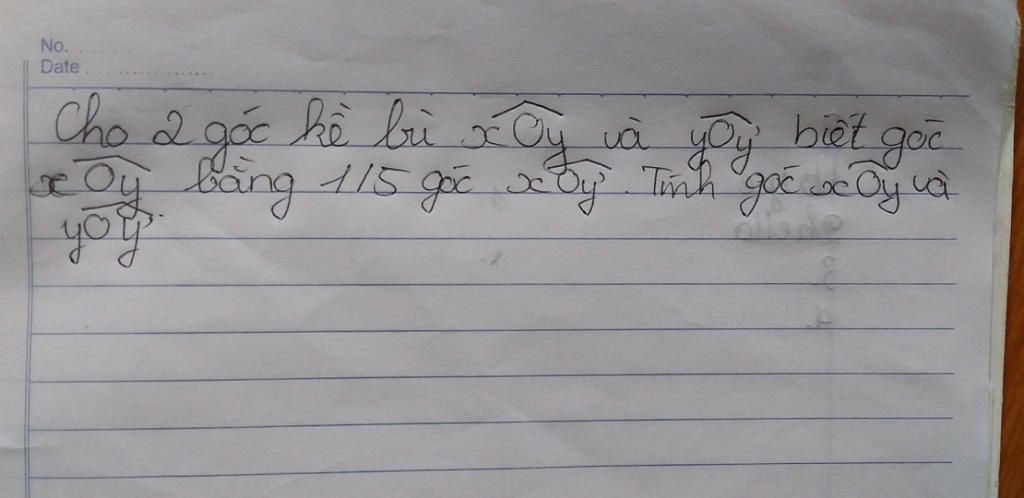 No. .....
Date ..................
Cho 2 góc kề bù xOy và yOy' biết góc
xOy bằng 1/5 góc xOy'. Tính góc xOy và
yOy'.